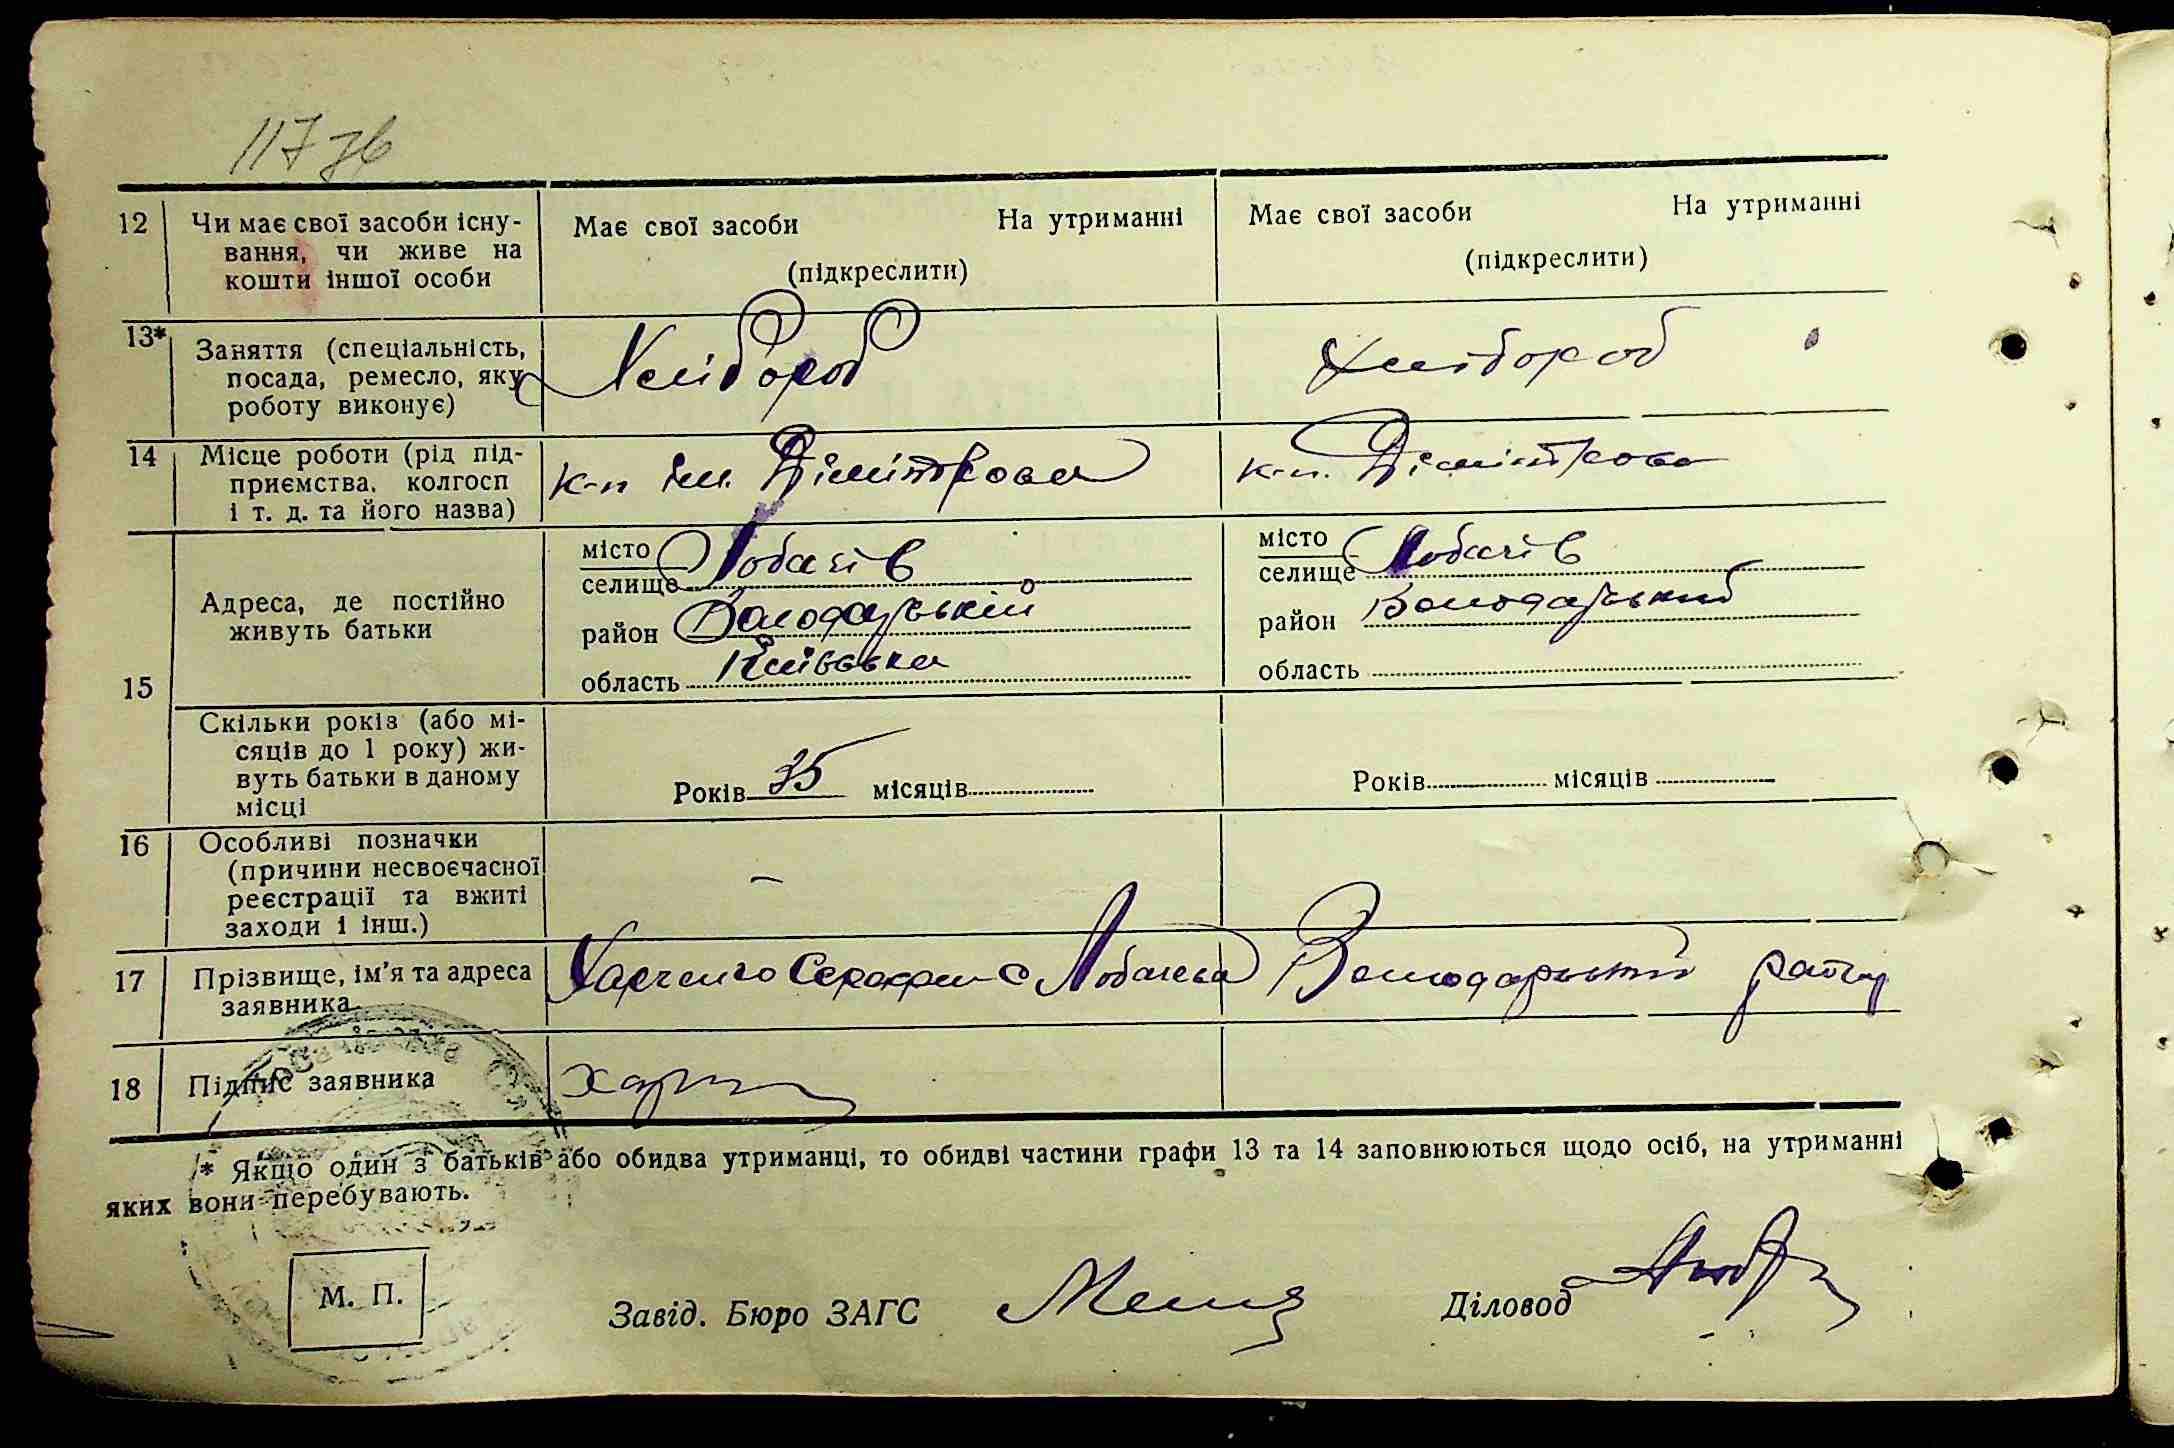 117 зв
12 Чи має свої засоби існу-
вання, чи живе на
кошти іншої особи
Має свої засоби На утриманні
(підкреслити)
Має свої засоби На утриманні
(підкреслити)
13* Заняття (спеціальність,
посада, ремесло, яку
роботу виконує)
Хлібороб
Хлібороб
14 Місце роботи (рід під-
приємства, колгосп
і т. д. та його назва)
к-п ім. Дімітрова
к-п. Дімітрова
15 Адреса, де постійно
живуть батьки
місто
селище Лобачів
район Володарській
область Київська
місто
селище Лобачів
район Володарський
область
Скільки років (або мі-
сяців до 1 року) жи-
вуть батьки в даному
місці
Років 35 місяців
Років місяців
16 Особливі позначки
(причини несвоєчасної
реєстрації та вжиті
заходи і інш.)
–
17 Прізвище, ім'я та адреса
заявника
Харченко Серафим с Лобачева Володарський
18 Підпис заявника
* Якщо один з батьків або обидва утриманці, то обидві частини графи 13 та 14 заповнюються щодо осіб, на утриманні
яких вони перебувають.
М. П.
Завід. Бюро ЗАГС
Діловод